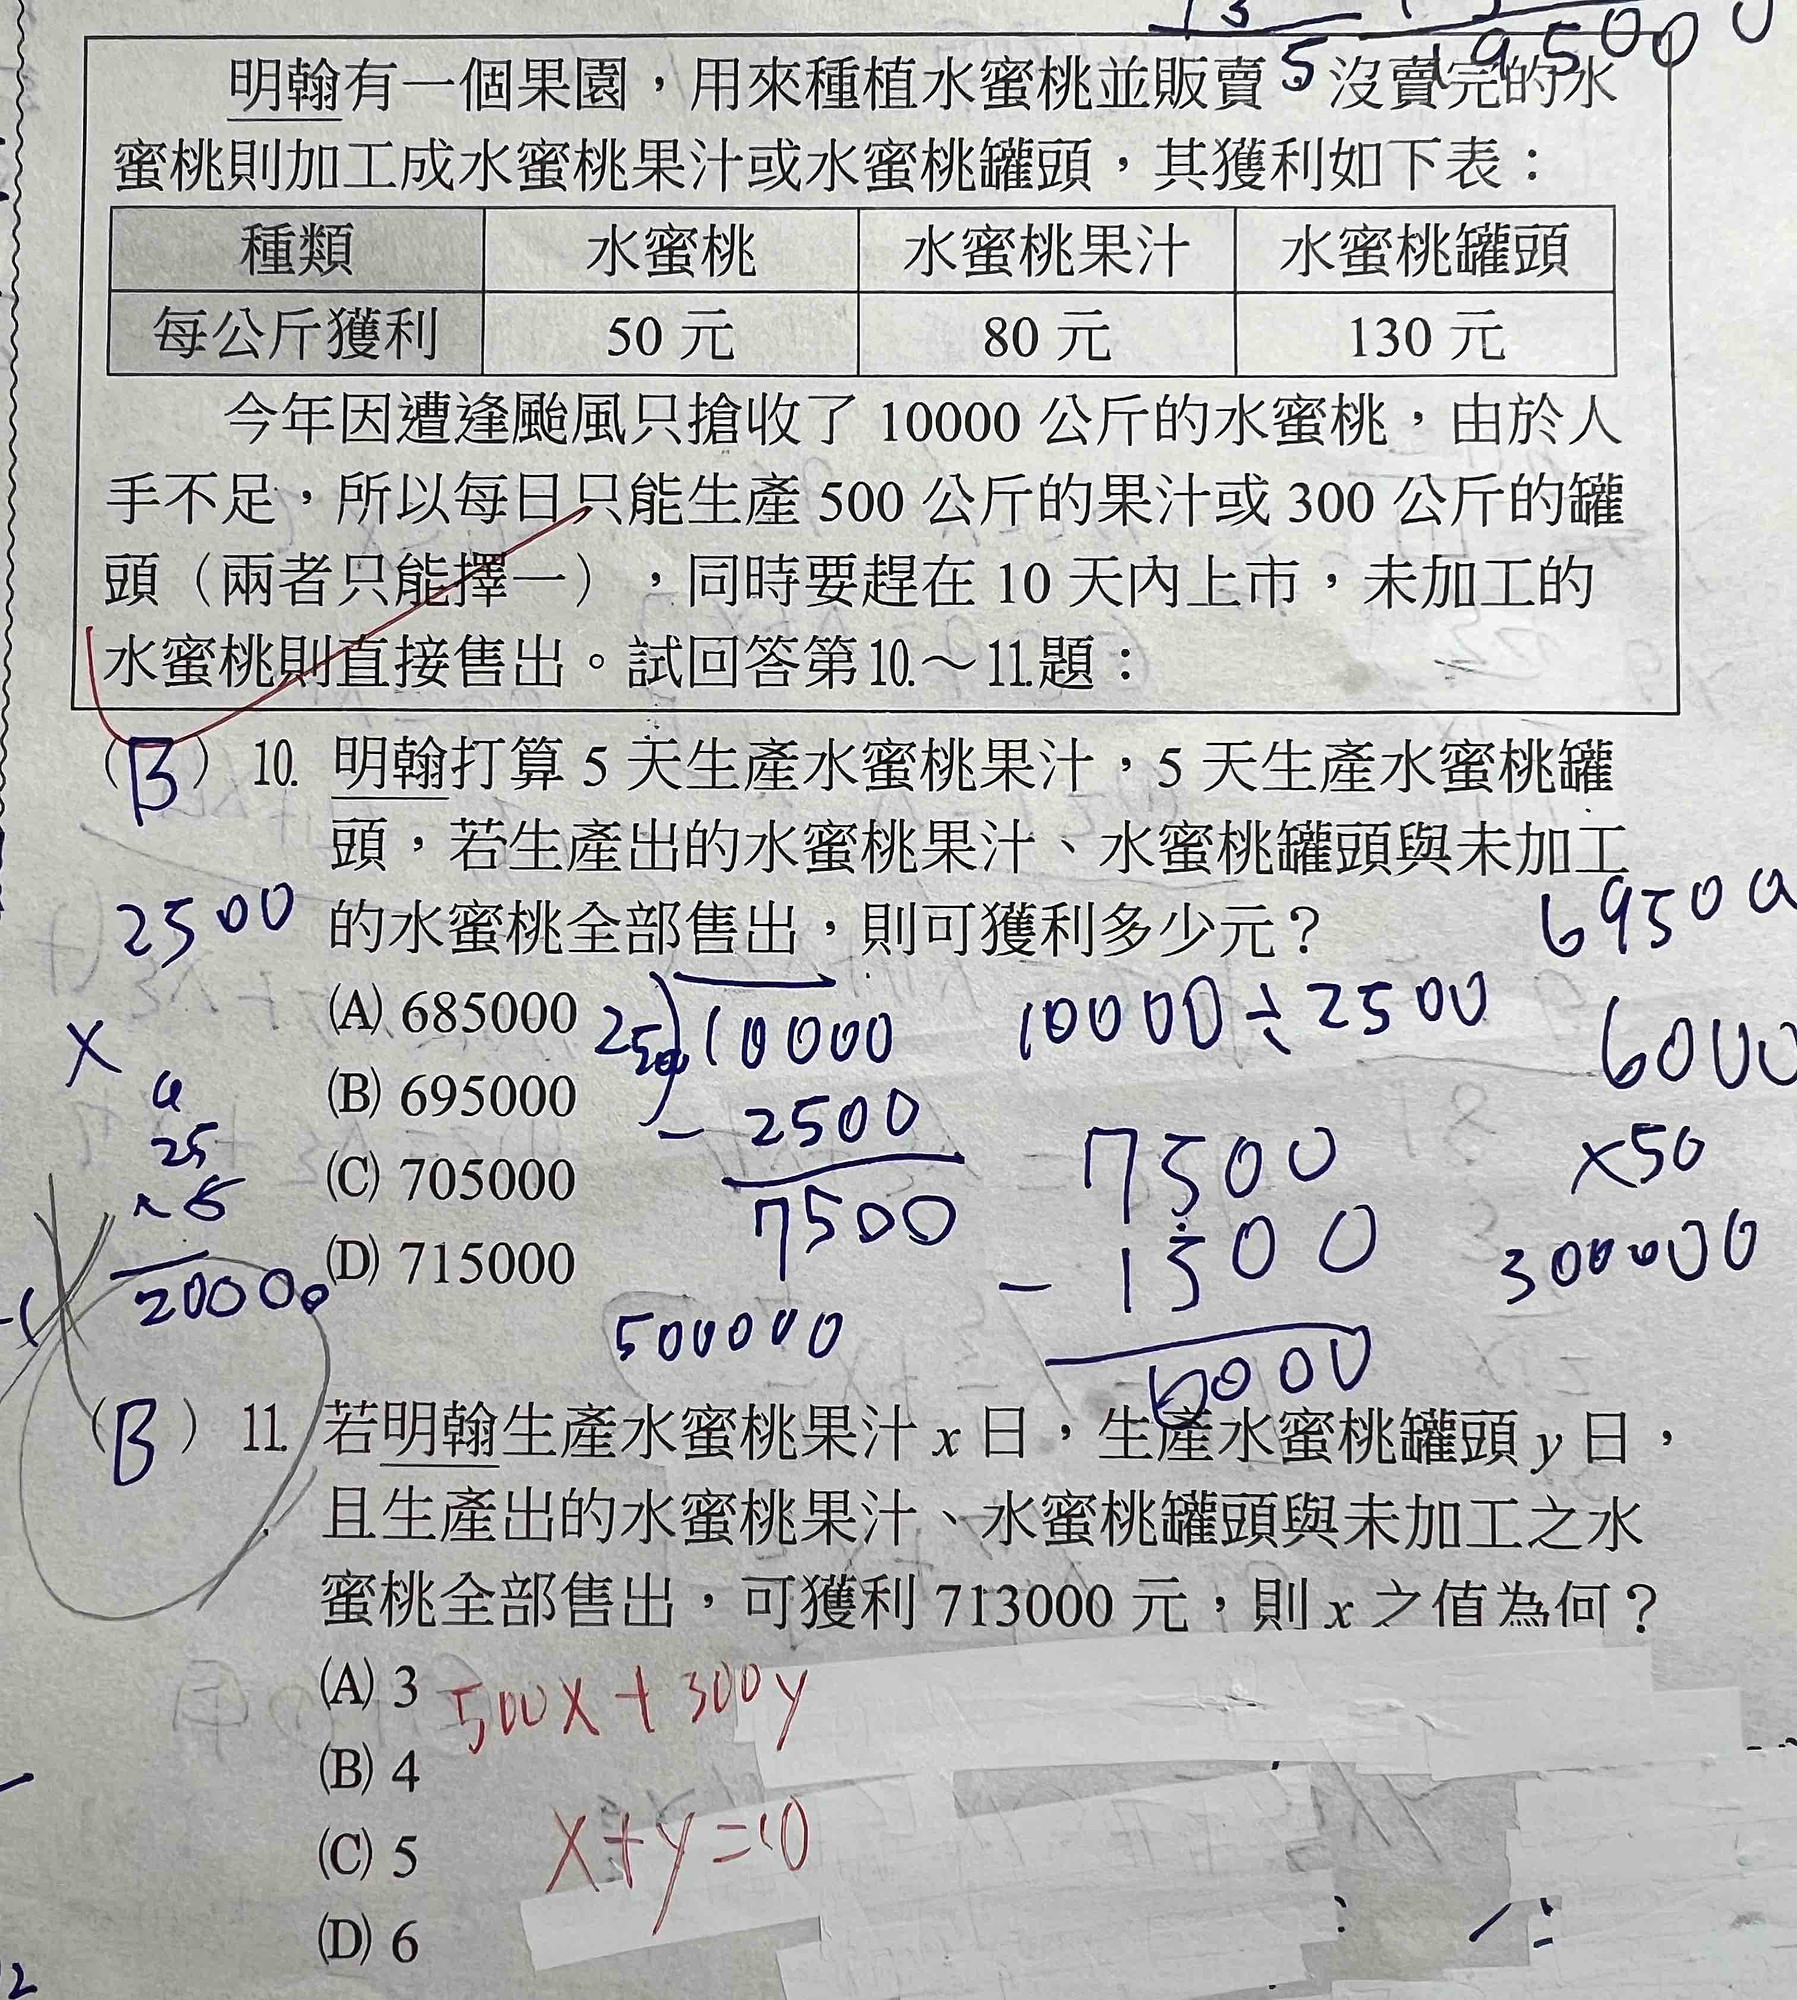 19500 0
5
明翰有一個果園，用來種植水蜜桃並販賣，沒賣完的水
蜜桃則加工成水蜜桃果汁或水蜜桃罐頭，其獲利如下表：
種類 水蜜桃 水蜜桃果汁 水蜜桃罐頭
每公斤獲利 50 元 80 元 130 元
今年因遭逢颱風只搶收了 10000 公斤的水蜜桃，由於人
手不足，所以每日只能生產 500 公斤的果汁或 300 公斤的罐
頭（兩者只能擇一），同時要趕在 10 天內上市，未加工的
水蜜桃則直接售出。試回答第10.～11.題：
（B）10. 明翰打算 5 天生產水蜜桃果汁，5 天生產水蜜桃罐
頭，若生產出的水蜜桃果汁、水蜜桃罐頭與未加工
的水蜜桃全部售出，則可獲利多少元？
2500
69500
(A) 685000
(B) 695000
(C) 705000
(D) 715000
2500)10000
- 2500
7500
10000÷2500
7500
- 1500
6000
6000
×50
300000
X
25
20000
500000
（B）11. 若明翰生產水蜜桃果汁 x 日，生產水蜜桃罐頭 y 日，
且生產出的水蜜桃果汁、水蜜桃罐頭與未加工之水
蜜桃全部售出，可獲利 713000 元，則 x 之值為何？
(A) 3
(B) 4
(C) 5
(D) 6
500X+300y
x+y=10
2